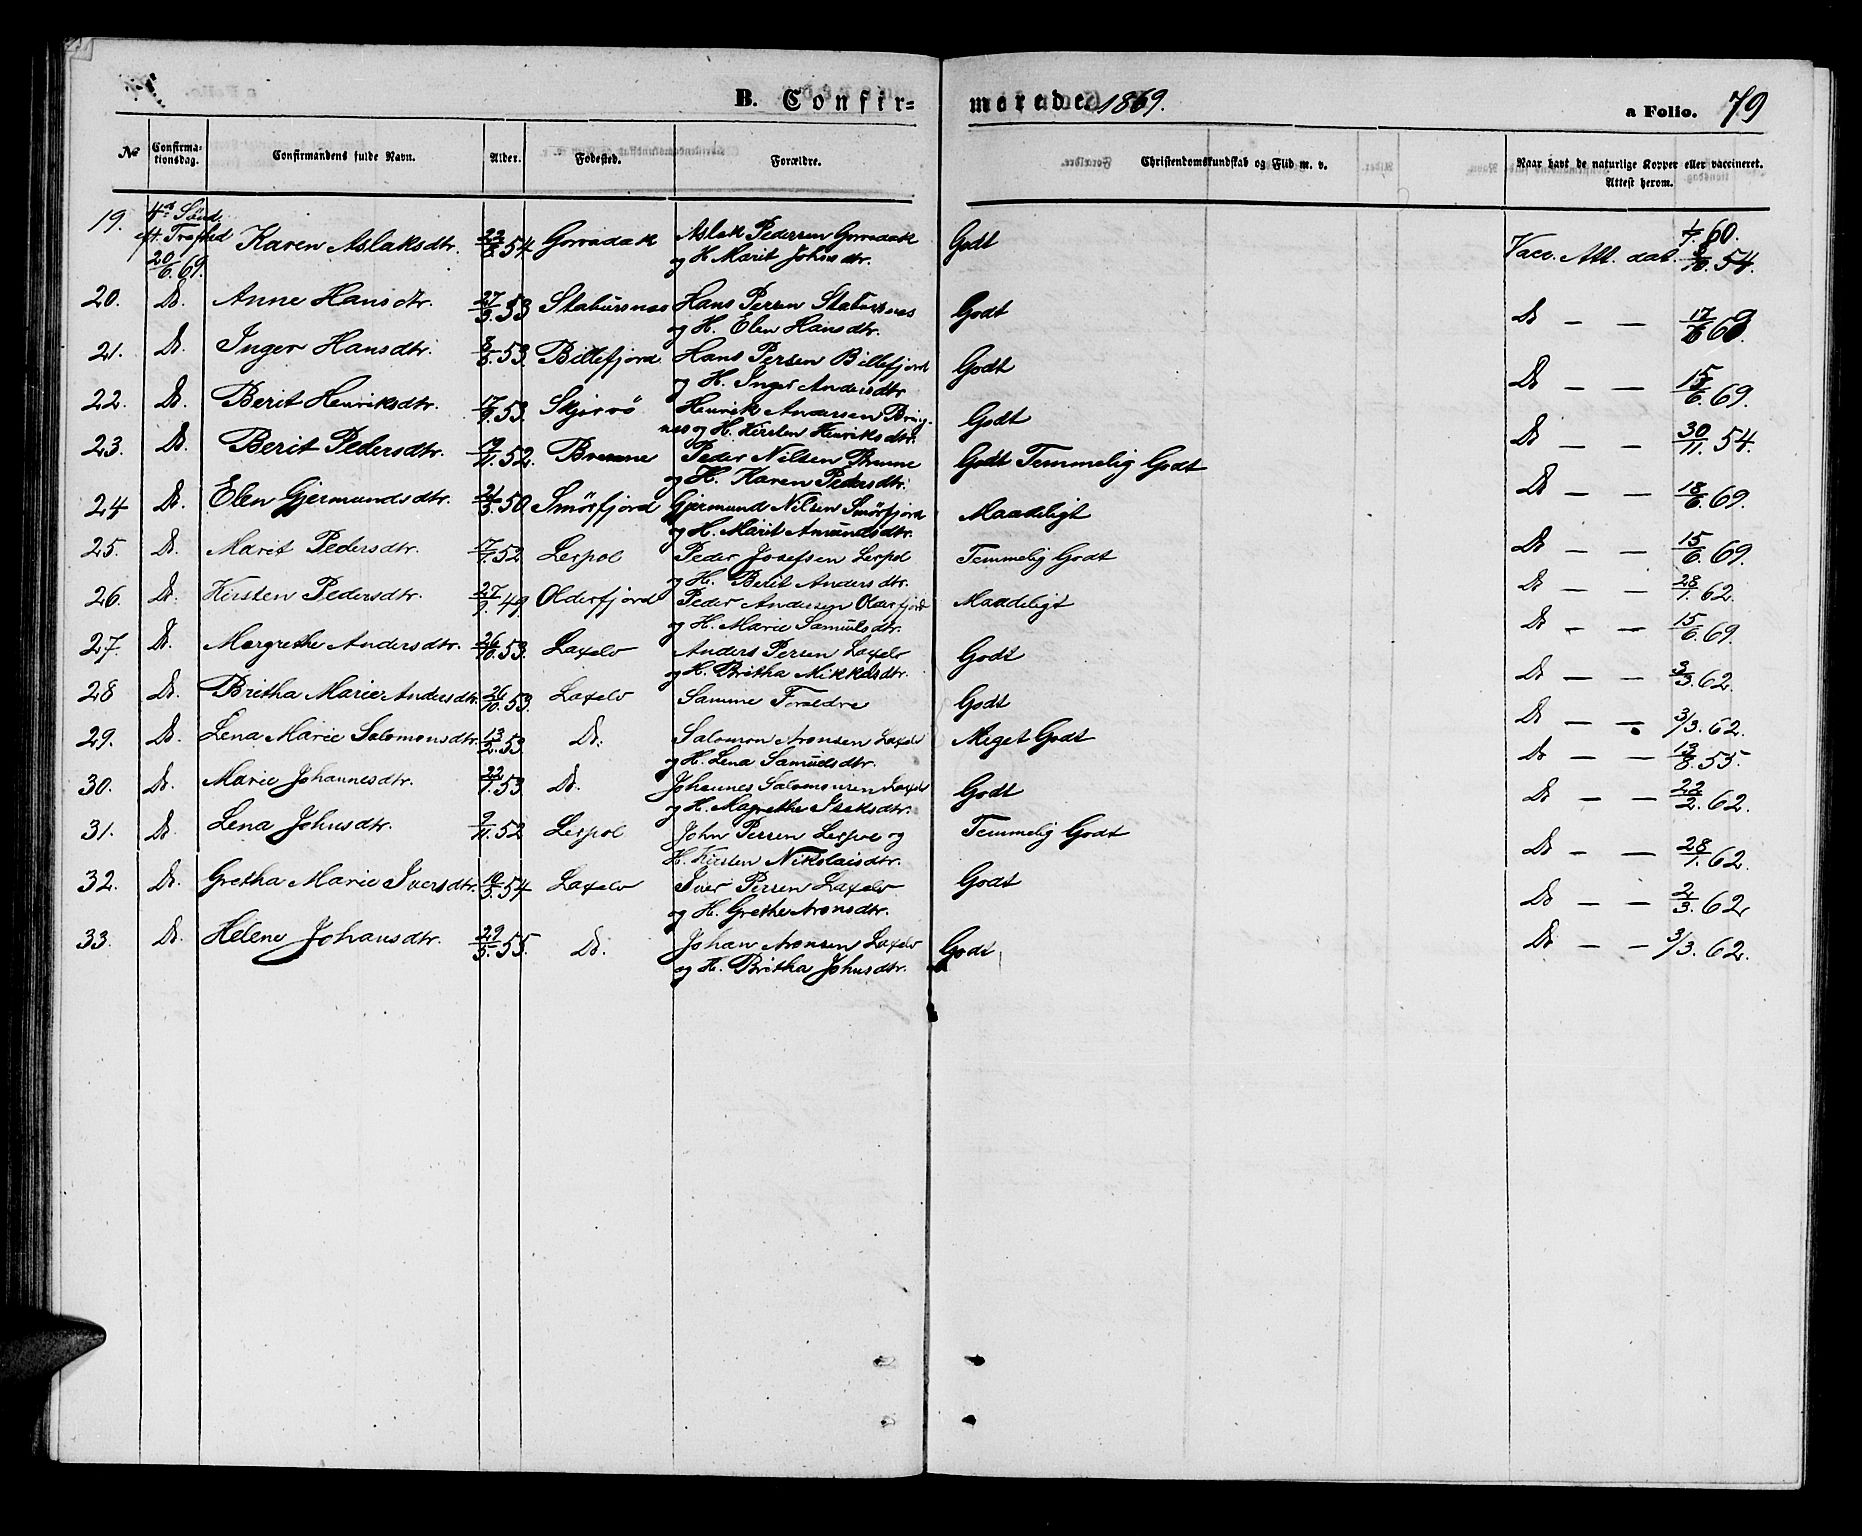 B. Confir=merede 1869. a Folio. 79
№ Confirma-tionsdag. Confirmandens fulde Navn. Alder. Fødested. Forældre. Christendomskundskab og Flid m. v. Naar havt de naturlige Kopper eller vaccineret. Attest herom.
19. 4de Sønd. eft. Trefhed 20/6.69. Karen Aslaksdtr. 54 Gorradak Aslak Pedersen Gorradak og H. Marit Johnsdtr. Godt Vacc. Att. dat. 54.
20. Do. Anne Hansdtr. 27/3.53 Stabursnæs Hans Persen Stabursnæs og H. Elen Hansdtr. Godt Do — —
21. Do. Inger Hansdtr. 53. Billefjord Hans Persen Billefjord og H. Inger Andersdtr. Godt Do — — 15/6.69.
22. Do. Berit Henriksdtr. 53. Skjervö Henrik Andersen Bring-næs og H. Kirsten Henriksdtr. Godt Do — — 30/11.54.
23. Do. Berit Pedersdtr. 52. Brenne Peder Nilsen Brenne og H. Karen Pedersdtr. Godt Temmelig Godt Do — — 18/6.69.
24 Do. Elen Gjermundsdtr. 21/3.50 Smörfjord Gjermund Nilsen Smörfjord og H. Marit Amundsdtr. Maadeligt Do — — 15/6.69.
25. Do. Marit Pedersdtr. 52 Lespol Peder Josefsen Lespol og H. Berit Andersdtr. Temmelig Godt Do — — 28/1.62.
26. Do. Kirsten Pedersdtr. 49 Olderfjord Peder Andersen Olderfjord og H. Marie Samuelsdtr. Maadeligt Do — — 15/6.69.
27. Do. Margrethe Andersdtr. 26/10.53. Laxelv Anders Persen Laxelv og H. Britha Mikkelsdtr. Godt Do — — 3/3.62.
28 Do. Britha Marie Andersdtr. 26/10.53. Laxelv Samme Forældre Godt Do — — 3/3.62.
29. Do. Lena Marie Salomonsdtr. 13/2.53 Do. Salomon Aronsen Laxelv og H. Lena Samuelsdtr. Meget Godt Do — — 13/8.55.
30. Do. Marie Johannesdtr. 53 Do. Johannes Salomonsen Laxelv og H. Magrethe Isaksdtr. Godt Do — — 22/2.62.
31. Do. Lena Johnsdtr. 9/11.52 Lespol John Persen Lespol og H. Kirsten Nikolaisdtr. Temmelig Godt Do — — 28/1.62
32. Do. Gretha Marie Iversdtr. 54 Laxelv Iver Persen Laxelv og H. Grethe Aronsdtr. Godt Do — — 2/3.62
33. Do. Helene Johansdtr. 29/5.55. Do. Johan Aronsen Laxelv og H. Britha Johnsdtr. Godt Do — — 3/3.62.